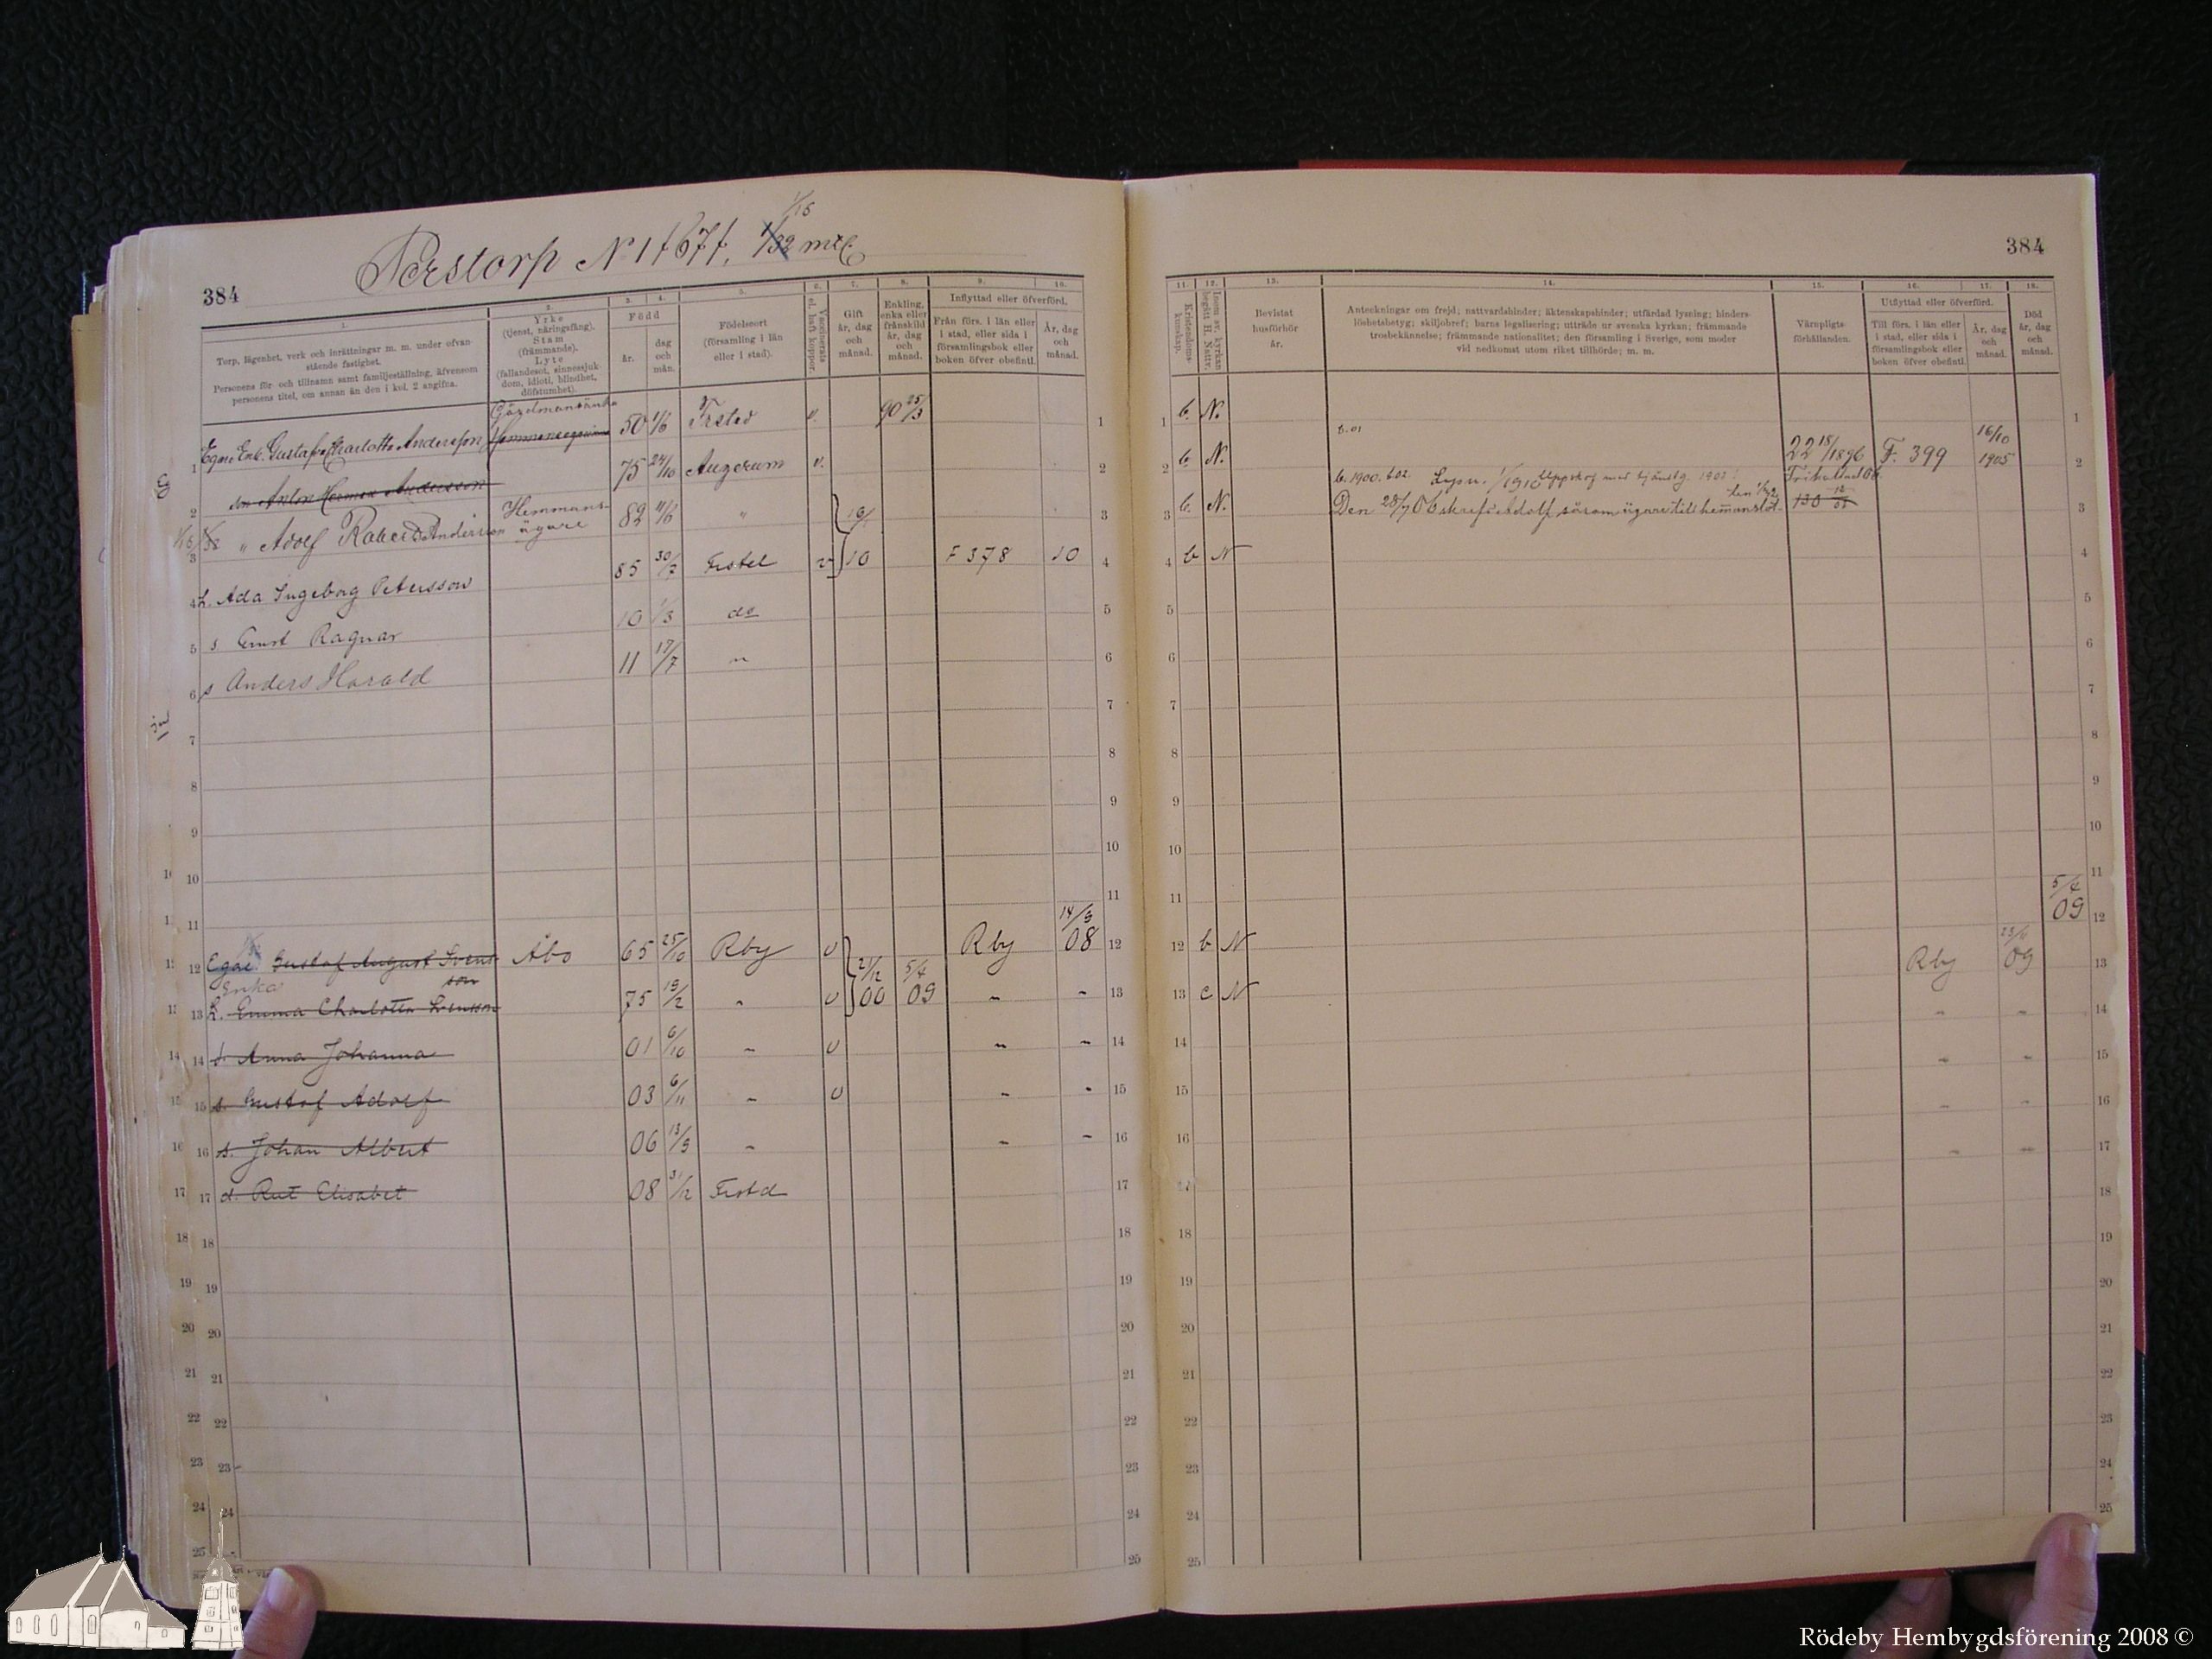 1/16
Perstorp N 1 f 67 f. 1/32 mtl
384
384
1. 2. 3. 4. 5. 6. 7. 8. 9. 10.
Torp, lägenhet, verk och inrättningar m. m. under ofvanstående fastighet.
Personens för- och tillnamn samt familjeställning, äfvensom personens titel, om annan än den i kol. 2 angifna.
Yrke
(tjenst, näringsfång).
Stam
(främmande).
Lyte
(fallandesot, sinnessjukdom, idioti, blindhet, döfstumhet).
Född
år.
dag och mån.
Födelseort
(församling i län eller i stad).
Vaccinerats el. haft koppor.
Gift år, dag och månad.
Enkling, enka eller frånskild år, dag och månad.
Inflyttad eller öfverförd.
Från förs. i län eller i stad, eller sida i församlingsbok eller boken öfver obefintl.
År, dag och månad.
11. 12. 13. 14. 15. 16. 17. 18.
Kristendomskunskap.
Inom sv. kyrkan begått H. Nattv.
Bevistat husförhör år.
Anteckningar om frejd; nattvardshinder; äktenskapshinder; utfärdad lysning; hinderslöshetsbetyg; skiljobref; barns legalisering; utträde ur svenska kyrkan; främmande trosbekännelse; främmande nationalitet; den församling i Sverige, som moder vid nedkomst utom riket tillhörde; m. m.
Värnpligtsförhållanden.
Utflyttad eller öfverförd.
Till förs. i län eller i stad, eller sida i församlingsbok eller boken öfver obefintl.
År, dag och månad.
Död år, dag och månad.
1 Egare Enk. Gustafva Charlotta Andersson Gårdmansänka 50 1/6 Frstad v. 90 25/3 1 b. N.
2 son Anton Herman Andersson 75 24/10 Augerum v. 2 b. N. b.01 22 18/1896 F. 399 16/10 1905
3 1/16 1/32 " Adolf Robert Andersson Hemmansägare 82 11/6 " 16/ 3 b. N. b. 1900. b.02.
Den 28/7 06 skrefs Adolf såsom ägare till hemmanslot.
4 h. Ada Ingeborg Petersson 85 30/7 Frstd v 10 F 378 10 4 b N
5 s Ernst Ragnar 10 1/3 do
6 s Anders Harald 11 17/7 "
12 Egare Gustaf August Svensson Åbo 65 25/10 Rby v Rby 14/3 08 12 b N 5/4 09
Enka
13 h. Emma Charlotta Svensson 75 19/2 " v 21/12 00 5/4 09 " " 13 c N Rby 23/6 09
14 d. Anna Johanna 01 6/10 " v " "
15 s. Gustaf Adolf 03 6/11 " v " "
16 s. Johan Albert 06 13/9 " " "
17 d. Rut Elisabet 08 31/12 Frstd
Rödeby Hembygdsförening 2008 ©